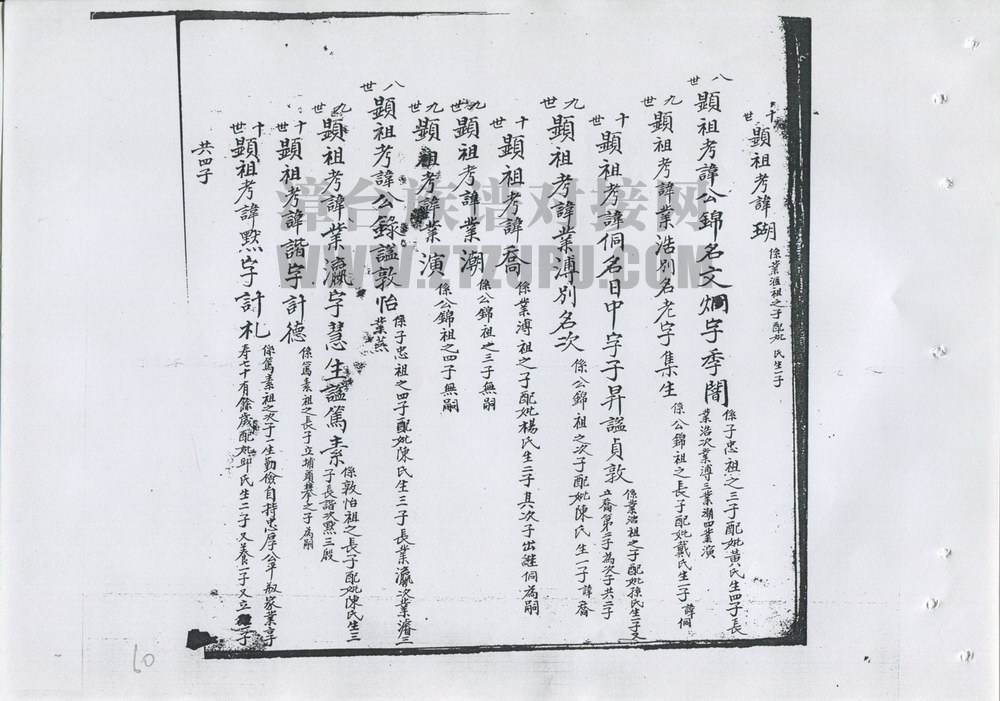 十世 顯祖考諱瑚 係業滙祖之子配妣 氏生一子
八世 顯祖考諱公錦名文炯字季闇 係子忠祖之三子配妣黃氏生四子長
業浩次業溥三業潮四業演
九世 顯祖考諱業浩別名老字集生 係公錦祖之長子配妣戴氏生一子諱侗
十世 顯祖考諱侗名日中字子昇謚貞敦 係業浩祖之子配妣孫氏生一子又
立喬第二子為次子共二子
九世 顯祖考諱業溥別名次 係公錦祖之次子配妣陳氏生一子諱喬
十世 顯祖考諱喬 係業溥祖之子配妣楊氏生二子其次子出継侗為嗣
九世 顯祖考諱業潮 係公錦祖之三子無嗣
九世 顯祖考諱業演 係公錦祖之四子無嗣
八世 顯祖考諱公錄謚敦怡 係子忠祖之四子配妣陳氏生三子長業瀛次業濬三
業燕
九世 顯祖考諱業瀛字慧生謚篤素 係敦怡祖之長子配妣陳氏生三
子長諧次默三殿
十世 顯祖考諱諧字計德 係篤素祖之長子立埔頭攀之子為嗣
十世 顯祖考諱默字計札 係篤素祖之次子一生勤儉自持忠厚公平叔家業享
寿七十有餘歲配妣邱氏生二子又養一子又立一子
共四子
漳台族谱对接网
WWW.ZTZUPU.COM
60